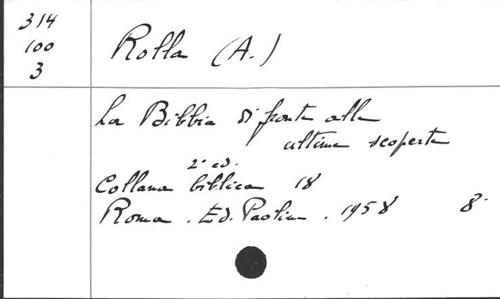 314
100
3
Rolla (A.)
La Bibbia di fronte alle
ultime scoperte
2ª ed.
Collana biblica 18
Roma . Ed. Paoline . 1958 8.